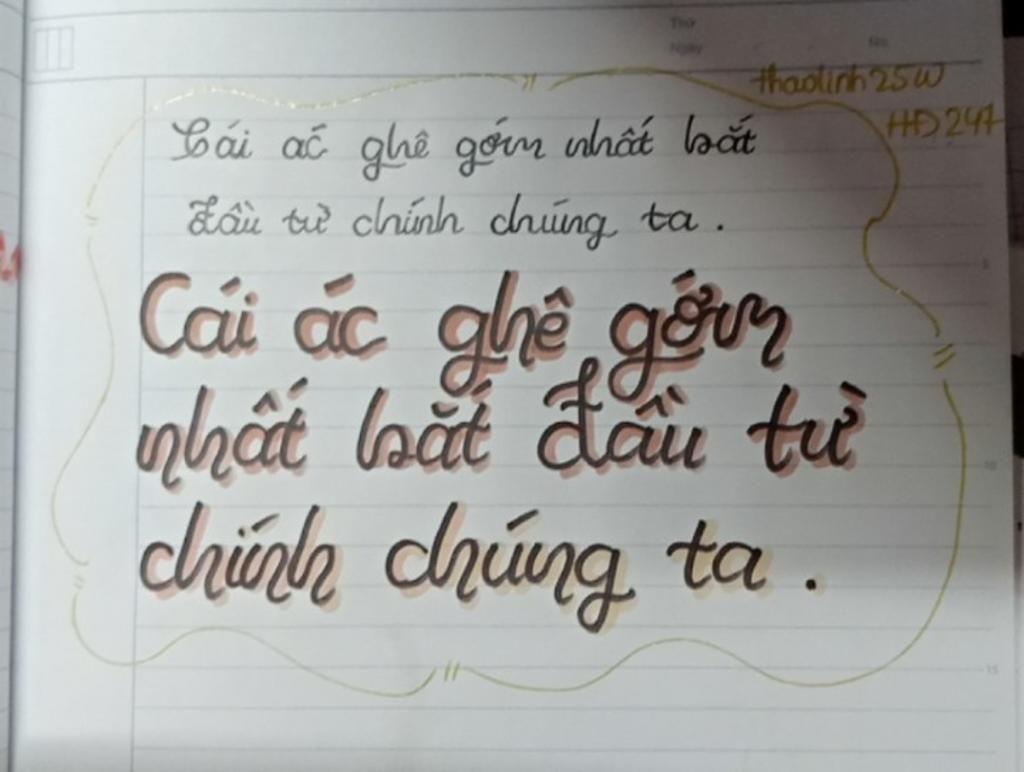 Thứ
Ngày
No.
thaolinh25W
HĐ247
Cái ác ghê gớm nhất bắt
đầu từ chính chúng ta.
Cái ác ghê gớm
nhất bắt đầu từ
chính chúng ta.
5
10
15